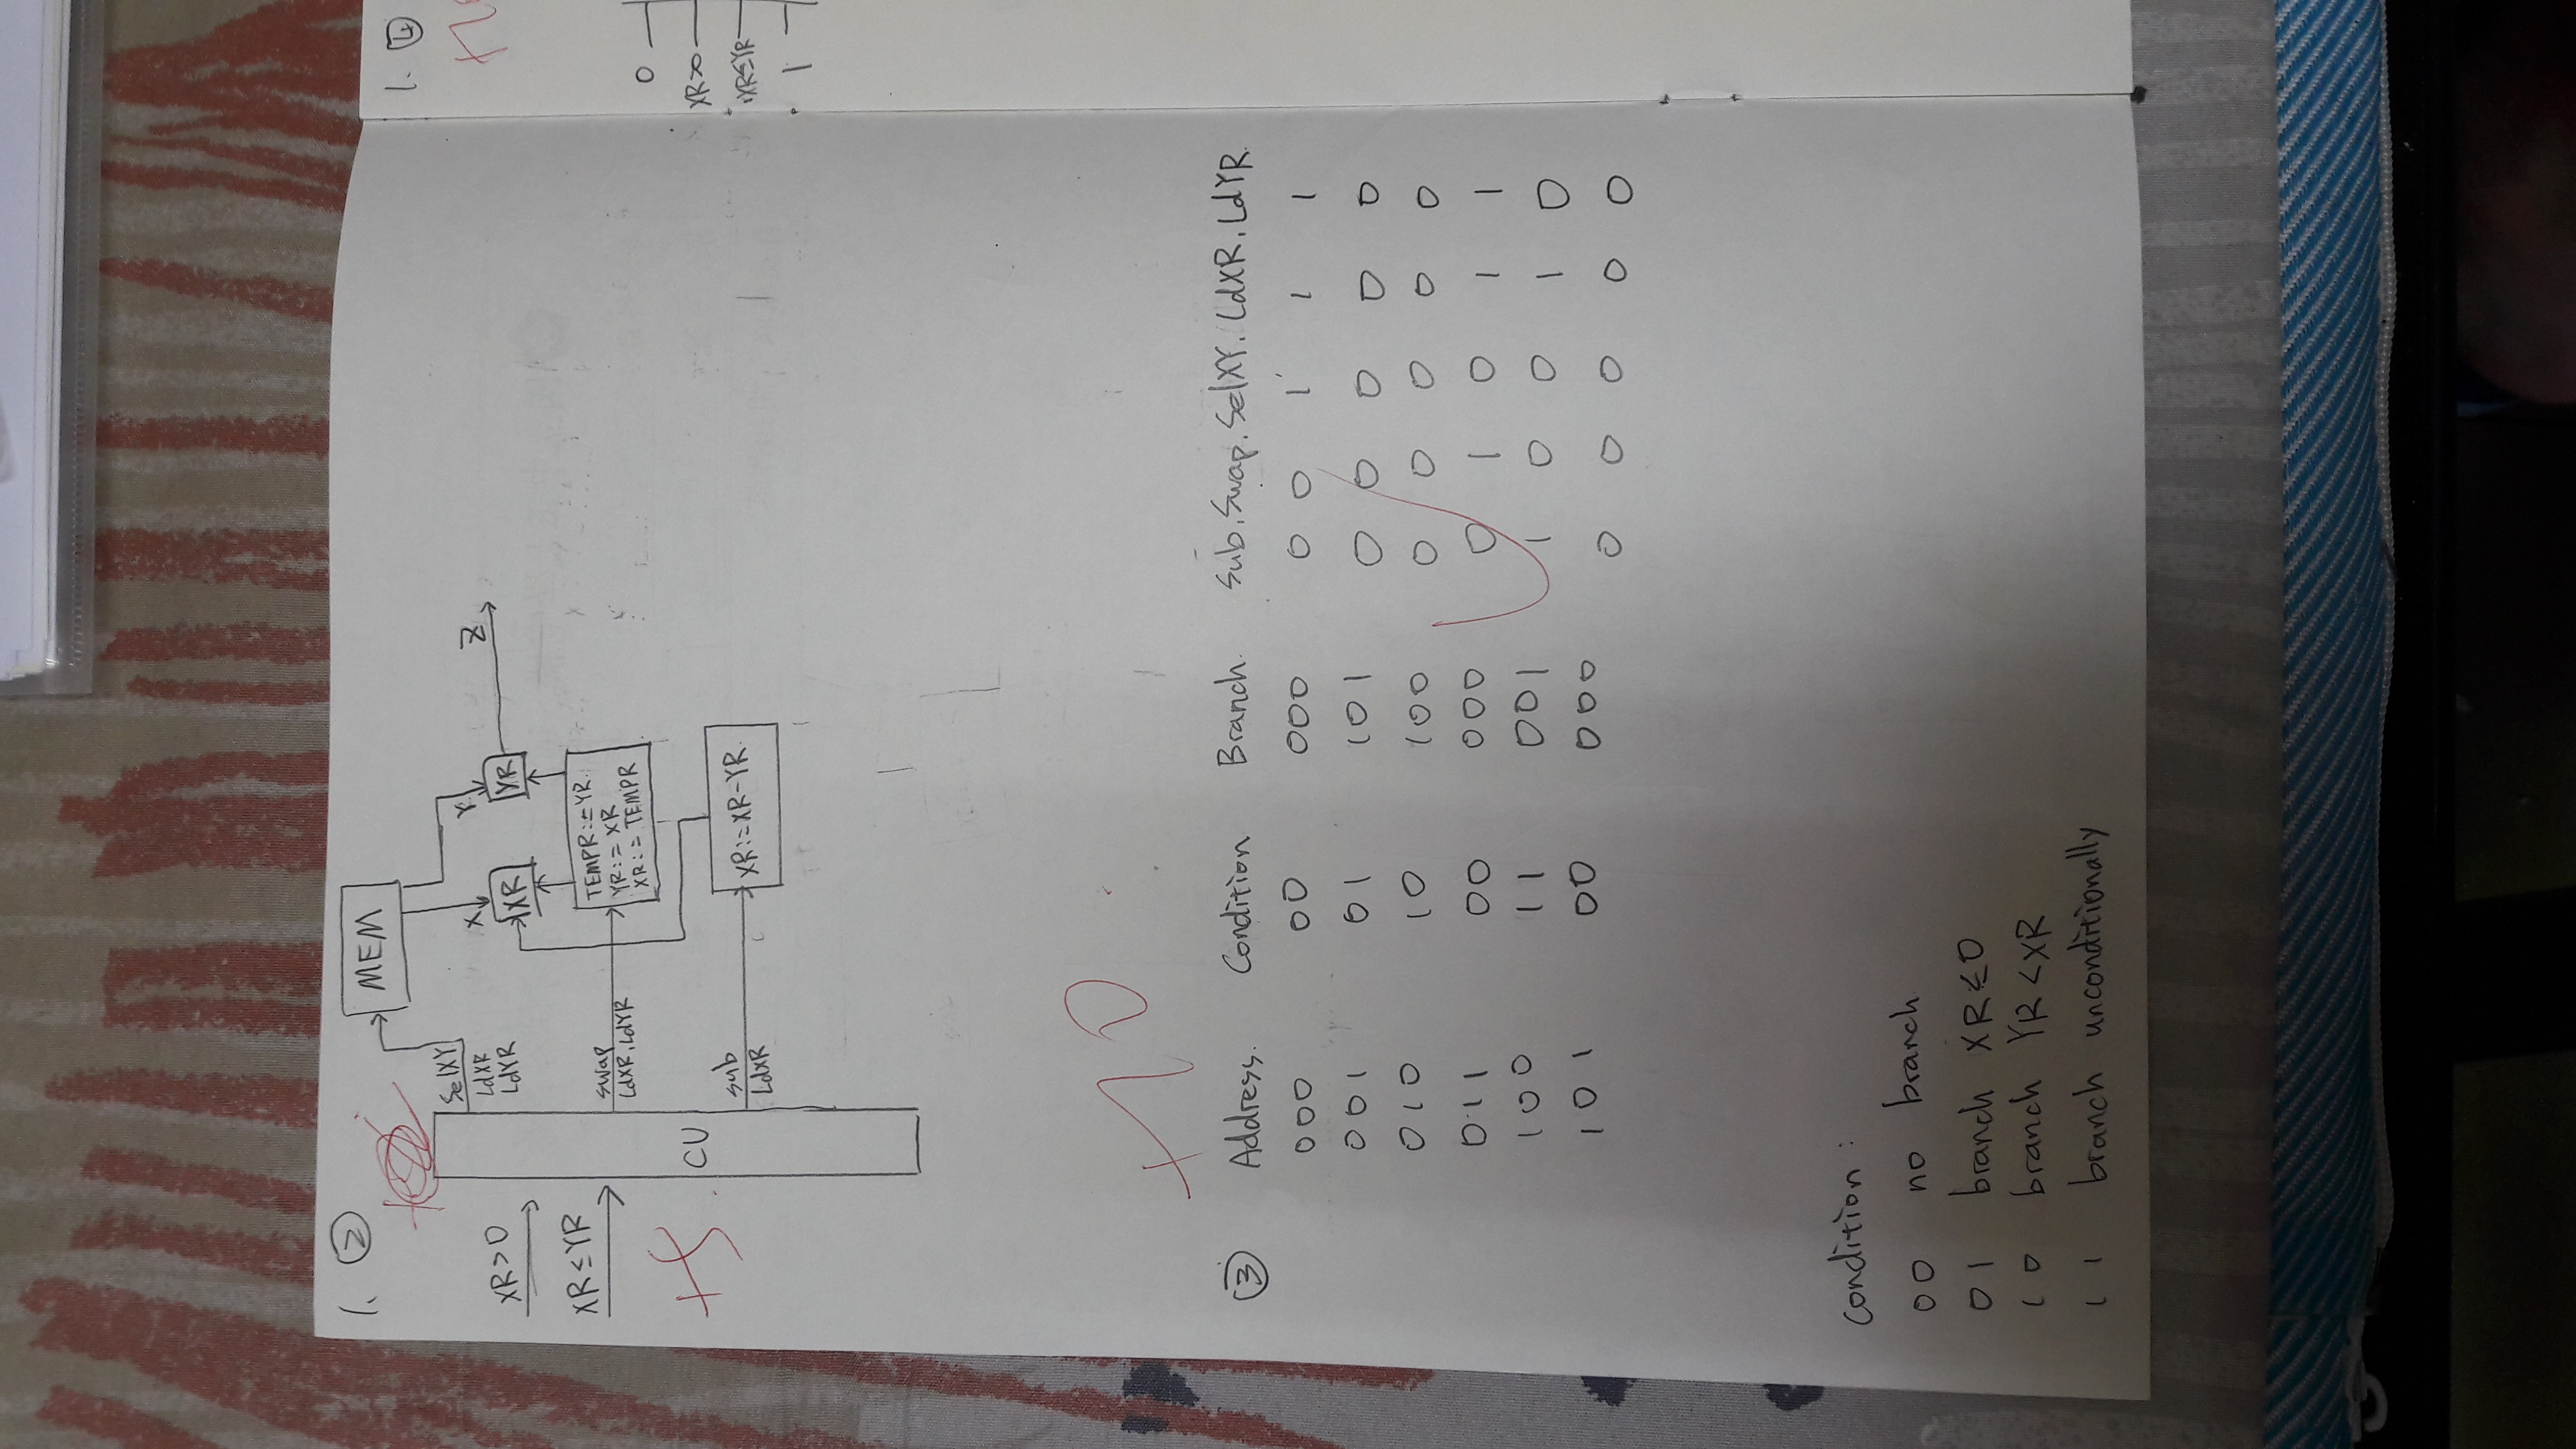 1. ②
MEM
SelXY
LdXR
LdYR
X
Y
Z
XR
YR
XR>0
XR≤YR
+5
CU
swap
LdXR, LdYR
TEMPR:=YR.
YR:=XR
XR:=TEMPR
sub
LdXR
XR:=XR-YR.
+10
③ Address. Condition Branch. Sub, Swap, SelXY, LdXR, LdYR.
000 00 000 0 0 1 1 1
001 01 101 0 0 0 0 0
010 10 100 0 0 0 0 0
011 00 000 0 1 0 1 1
100 11 001 1 0 0 1 0
101 00 000 0 0 0 0 0
condition:
00 no branch
01 branch XR≤0
10 branch YR<XR
11 branch unconditionally
1. ④
0
XR>0
XR≤YR
1